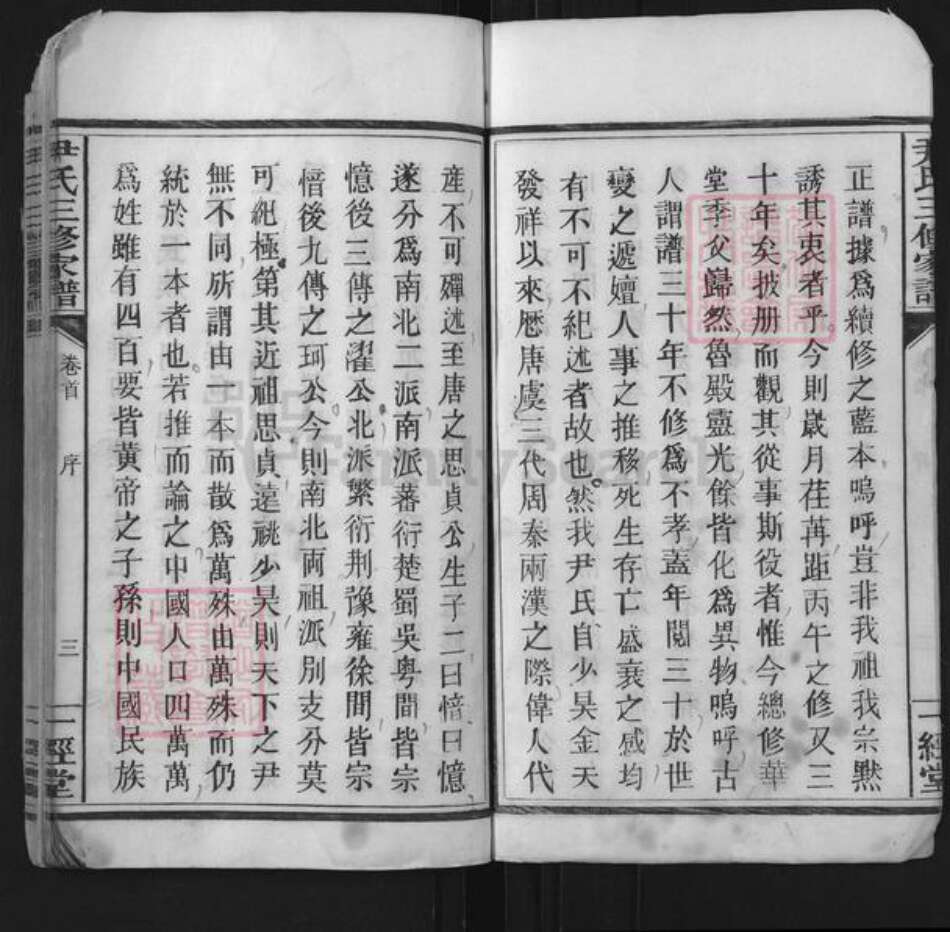 正譜據爲續修之藍本嗚呼豈非我祖我宗默
誘其衷者乎今則嵗月荏苒距丙午之修又三
十年矣披册而觀其從事斯役者惟今總修華
堂季父巋然魯殿靈光餘皆化爲異物嗚呼古
人謂譜三十年不修爲不孝蓋年閱三十於世
變之遞嬗人事之推移死生存亡盛衰之感均
有不可不紀述者故也然我尹氏自少昊金天
發祥以來歷唐虞三代周秦兩漢之際偉人代
產不可殫述至唐之思貞公生子二曰愔曰憶
遂分爲南北二派南派蕃衍楚蜀吳粤間皆宗
憶後三傳之濯公北派繁衍荆豫雍徐間皆宗
愔後九傳之珂公今則南北両祖派別支分莫
可紀極第其近祖思貞遠祧少昊則天下之尹
無不同所謂由一本而散爲萬殊由萬殊而仍
統於一本者也若推而論之中國人口四萬萬
爲姓雖有四百要皆黃帝之子孫則中國民族
尹氏三修家譜
卷首
序
三
一經堂
尹氏三修家譜
一經堂
FamilySearch